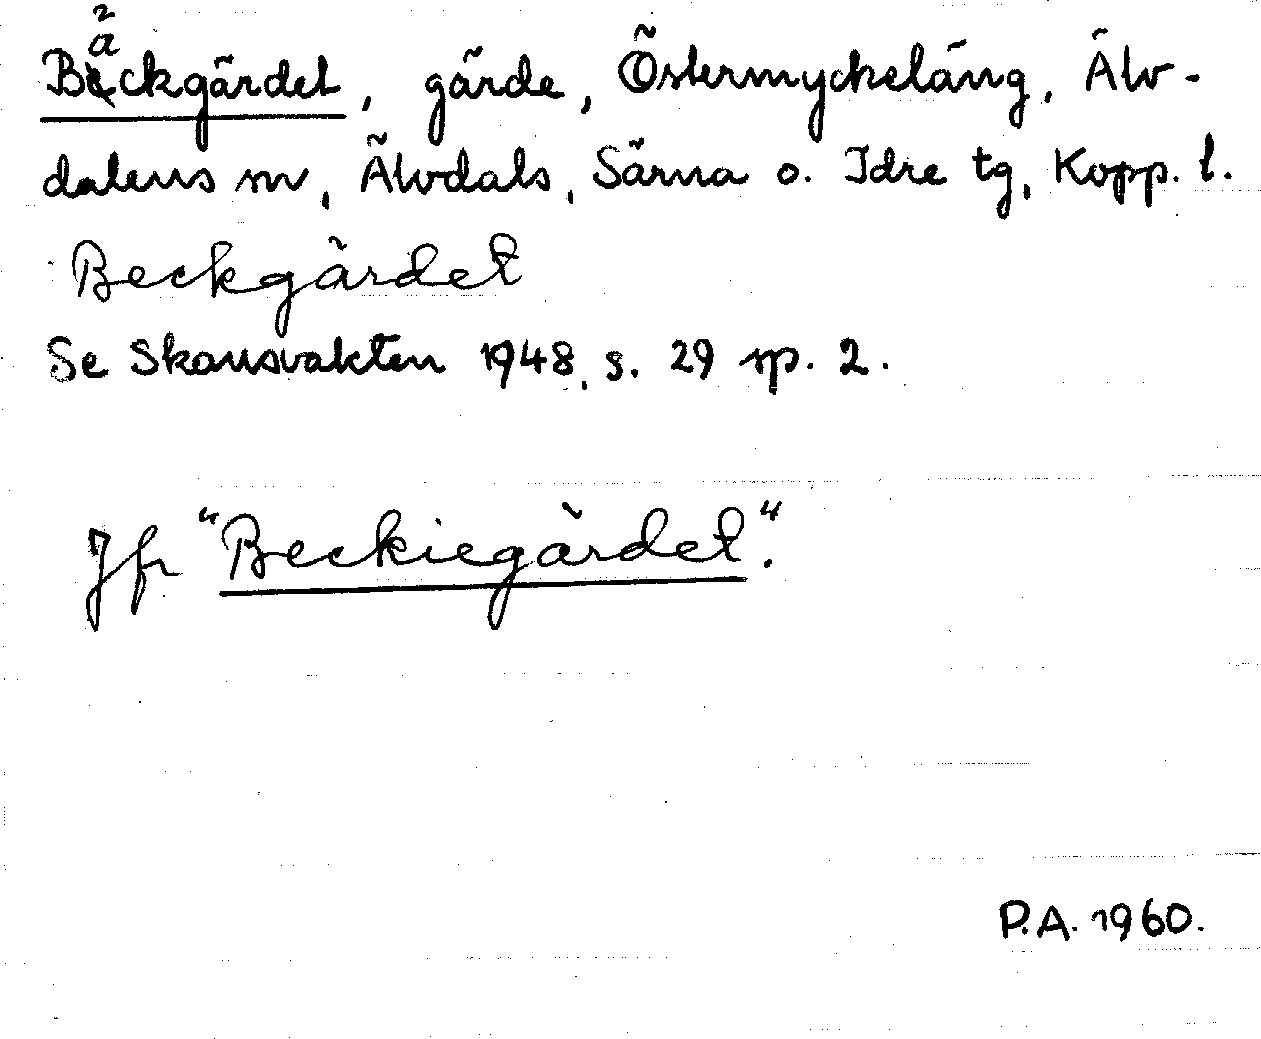 Bäckgärdet, gärde, Östermyckeläng, Älv-
dalens sn, Älvdals, Särna o. Idre tg, Kopp. l.
Beckgärdet
Se Skansvakten 1948, s. 29 sp. 2.
Jfr "Beckiegärdet".
P.A. 1960.